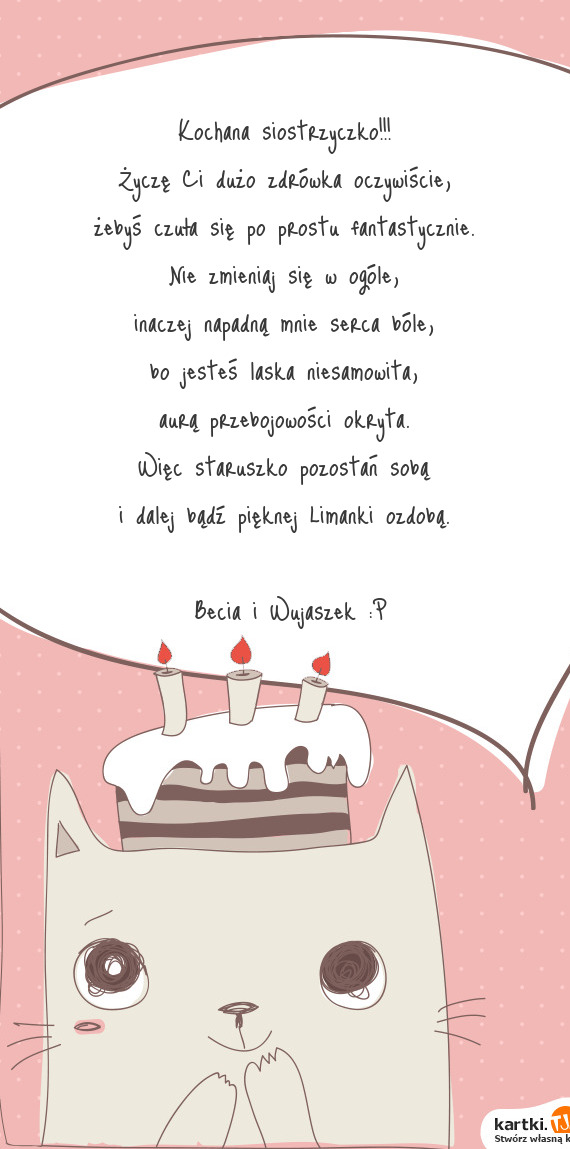 Kochana siostrzyczko!!!
Życzę Ci dużo zdrówka oczywiście,
żebyś czuła się po prostu fantastycznie.
Nie zmieniaj się w ogóle,
inaczej napadną mnie serca bóle,
bo jesteś laska niesamowita,
aurą przebojowości okryta.
Więc staruszko pozostań sobą
i dalej bądź pięknej Limanki ozdobą.
Becia i Wujaszek :P
kartki.TJ
Stwórz własną k